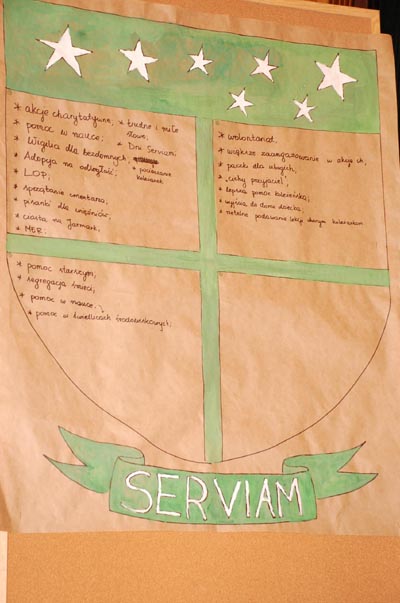 * akcje charytatywne;
* pomoc w nauce;
* Wigilia dla bezdomnych,
* Adopcja na odległość;
* LOP;
* sprzątanie cmentarza,
* pisanki dla więźniów,
* ciasta na Jarmark;
* MER;
* trudne i miłe
słowa;
* Dni Serviam;
* pocieszanie
koleżanek
* wolontariat,
* większe zaangażowanie w akcje ch,
* paczki dla ubogich,
* "cichy przyjaciel",
* lepsza pomoc koleżeńska;
* wyjścia do domu dziecka
* rzetelne podawanie lekcji chorym koleżankom
* pomoc starszym,
* segregacja śmieci;
* pomoc w nauce;
* pomoc w świetlicach środowiskowych;
SERVIAM